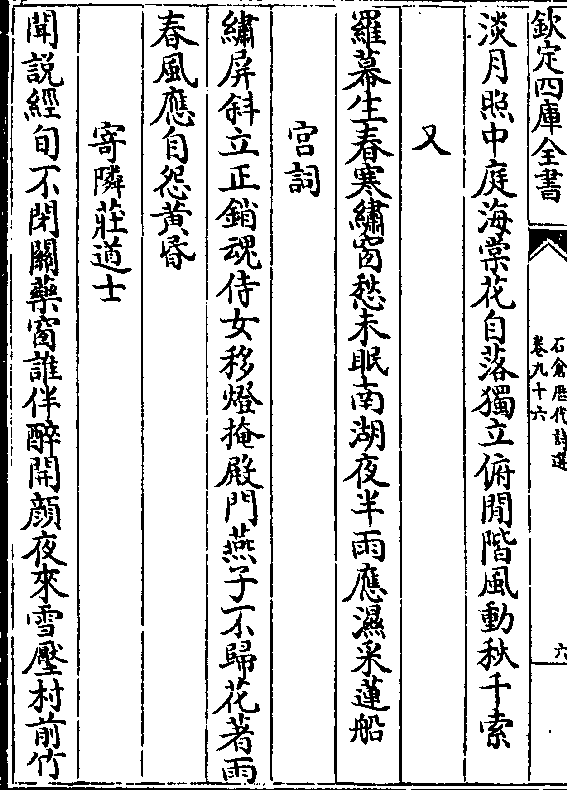 欽定四庫全書
石倉歷代詩選
卷九十六
六
淡月照中庭海棠花自落獨立俯閒階風動秋千索
又
羅幕生春寒繡窗愁未眠南湖夜半雨應濕采蓮船
宮詞
繡屏斜立正銷魂侍女移燈掩殿門燕子不歸花著雨
春風應自怨黃昏
寄隣莊道士
聞說經旬不閉關藥窗誰伴醉開顏夜來雪壓村前竹